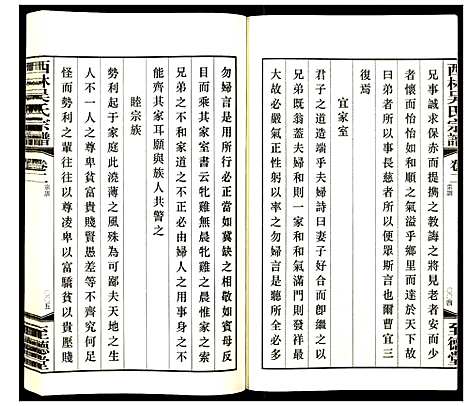 西林吳氏宗譜 卷二 宗訓 〇〇四 至德堂
兄事誠求保赤而提攜之教誨之將見老者安少
者懷而怡怡如和順之氣溢乎鄉里而達乎天下故
曰弟者所以事長慈者所以使眾斯言也爾曹宜三
復焉
宜家室
君子之道造端乎夫婦詩曰妻子好合即繼之以
兄弟既翕蓋夫婦和則一家和和氣滿門則發祥最
大故必嚴氣正性有以率之所全必多
勿婦言是聽所行必正當如冀缺之相敬如賓母反
目而乖其家室書云牝雞無晨牝雞之晨惟家之索
兄弟之不和家道之不正必由婦人其夫不正斯不
能齊其家耳願與族人共警之
睦宗族
勢利起于家庭此澆薄之風殊為可鄙夫天地之生
人不一人之尊卑貧富貴賤賢愚差等不齊究何足
怪而勢利之輩往往以尊凌卑以富驕貧以貴壓賤
西林吳氏宗譜 卷二 宗訓 〇〇五 至德堂